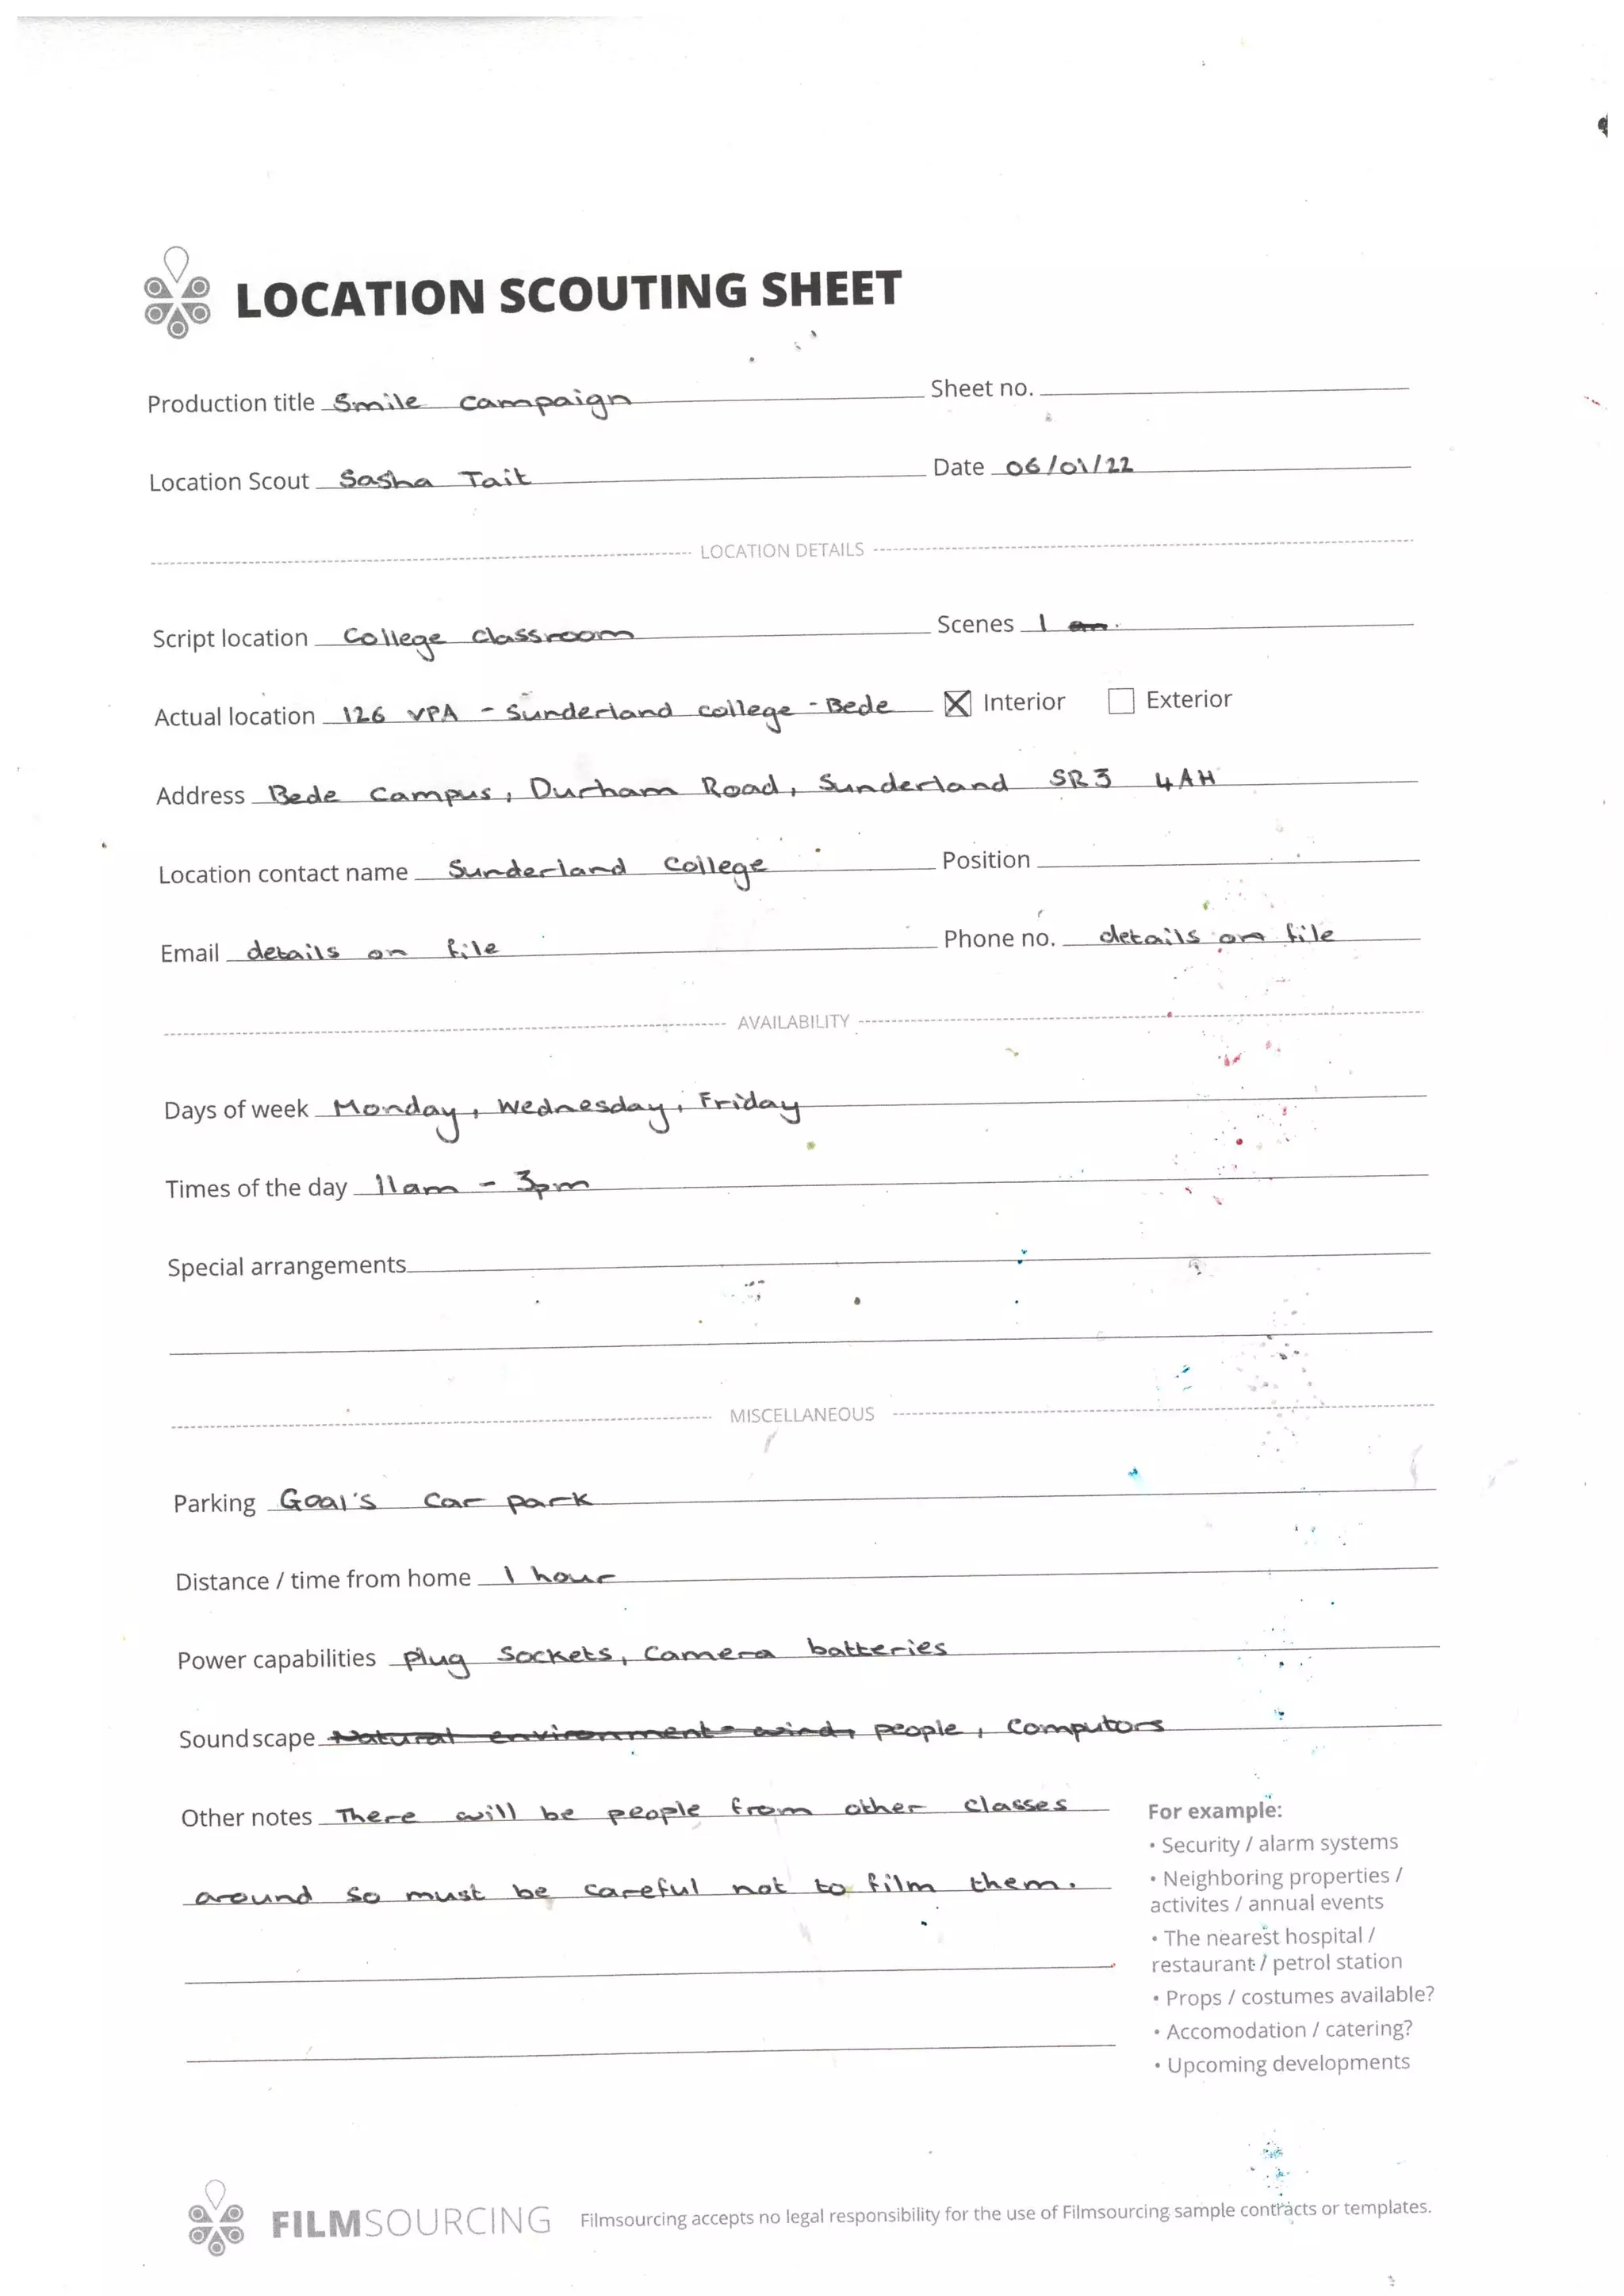 LOCATION SCOUTING SHEET
Production title Smile campaign Sheet no.
Location Scout Sasha Tait Date 06/01/22
LOCATION DETAILS
Script location College classroom Scenes 1
Actual location 126 VPA - Sunderland college - Bede Interior Exterior
Address Bede Campus, Durham Road, Sunderland SR3 4AH
Location contact name Sunderland College Position
Email details on file Phone no. details on file
AVAILABILITY
Days of week Monday, Wednesday, Friday
Times of the day 11am - 3pm
Special arrangements
MISCELLANEOUS
Parking Goal's Car park
Distance / time from home 1 hour
Power capabilities plug sockets, camera batteries
Soundscape Natural environment - wind, people, computors
Other notes There will be people from other classes
around so must be careful not to film them.
For example:
• Security / alarm systems
• Neighboring properties /
activites / annual events
• The nearest hospital /
restaurant / petrol station
• Props / costumes available?
• Accomodation / catering?
• Upcoming developments
FILMSOURCING Filmsourcing accepts no legal responsibility for the use of Filmsourcing sample contracts or templates.